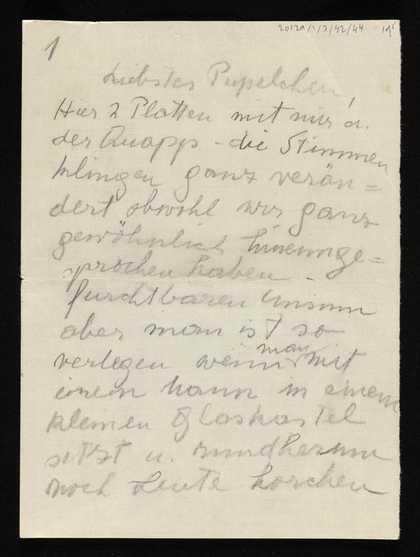 20121/1/3/42/44
1
Liebstes Pupelchen,
Hier 2 Platten mit mir u.
der Quapps - die Stimmen
klingen ganz verän=
dert obwohl wir ganz
gewöhnlich hineinge=
sprochen haben -
furchtbaren Unsinn
aber man ist so
verlegen wenn man mit
einem Mann in einem
kleinen Glaskastel
sitzt u. rundherum
noch Leute horchen